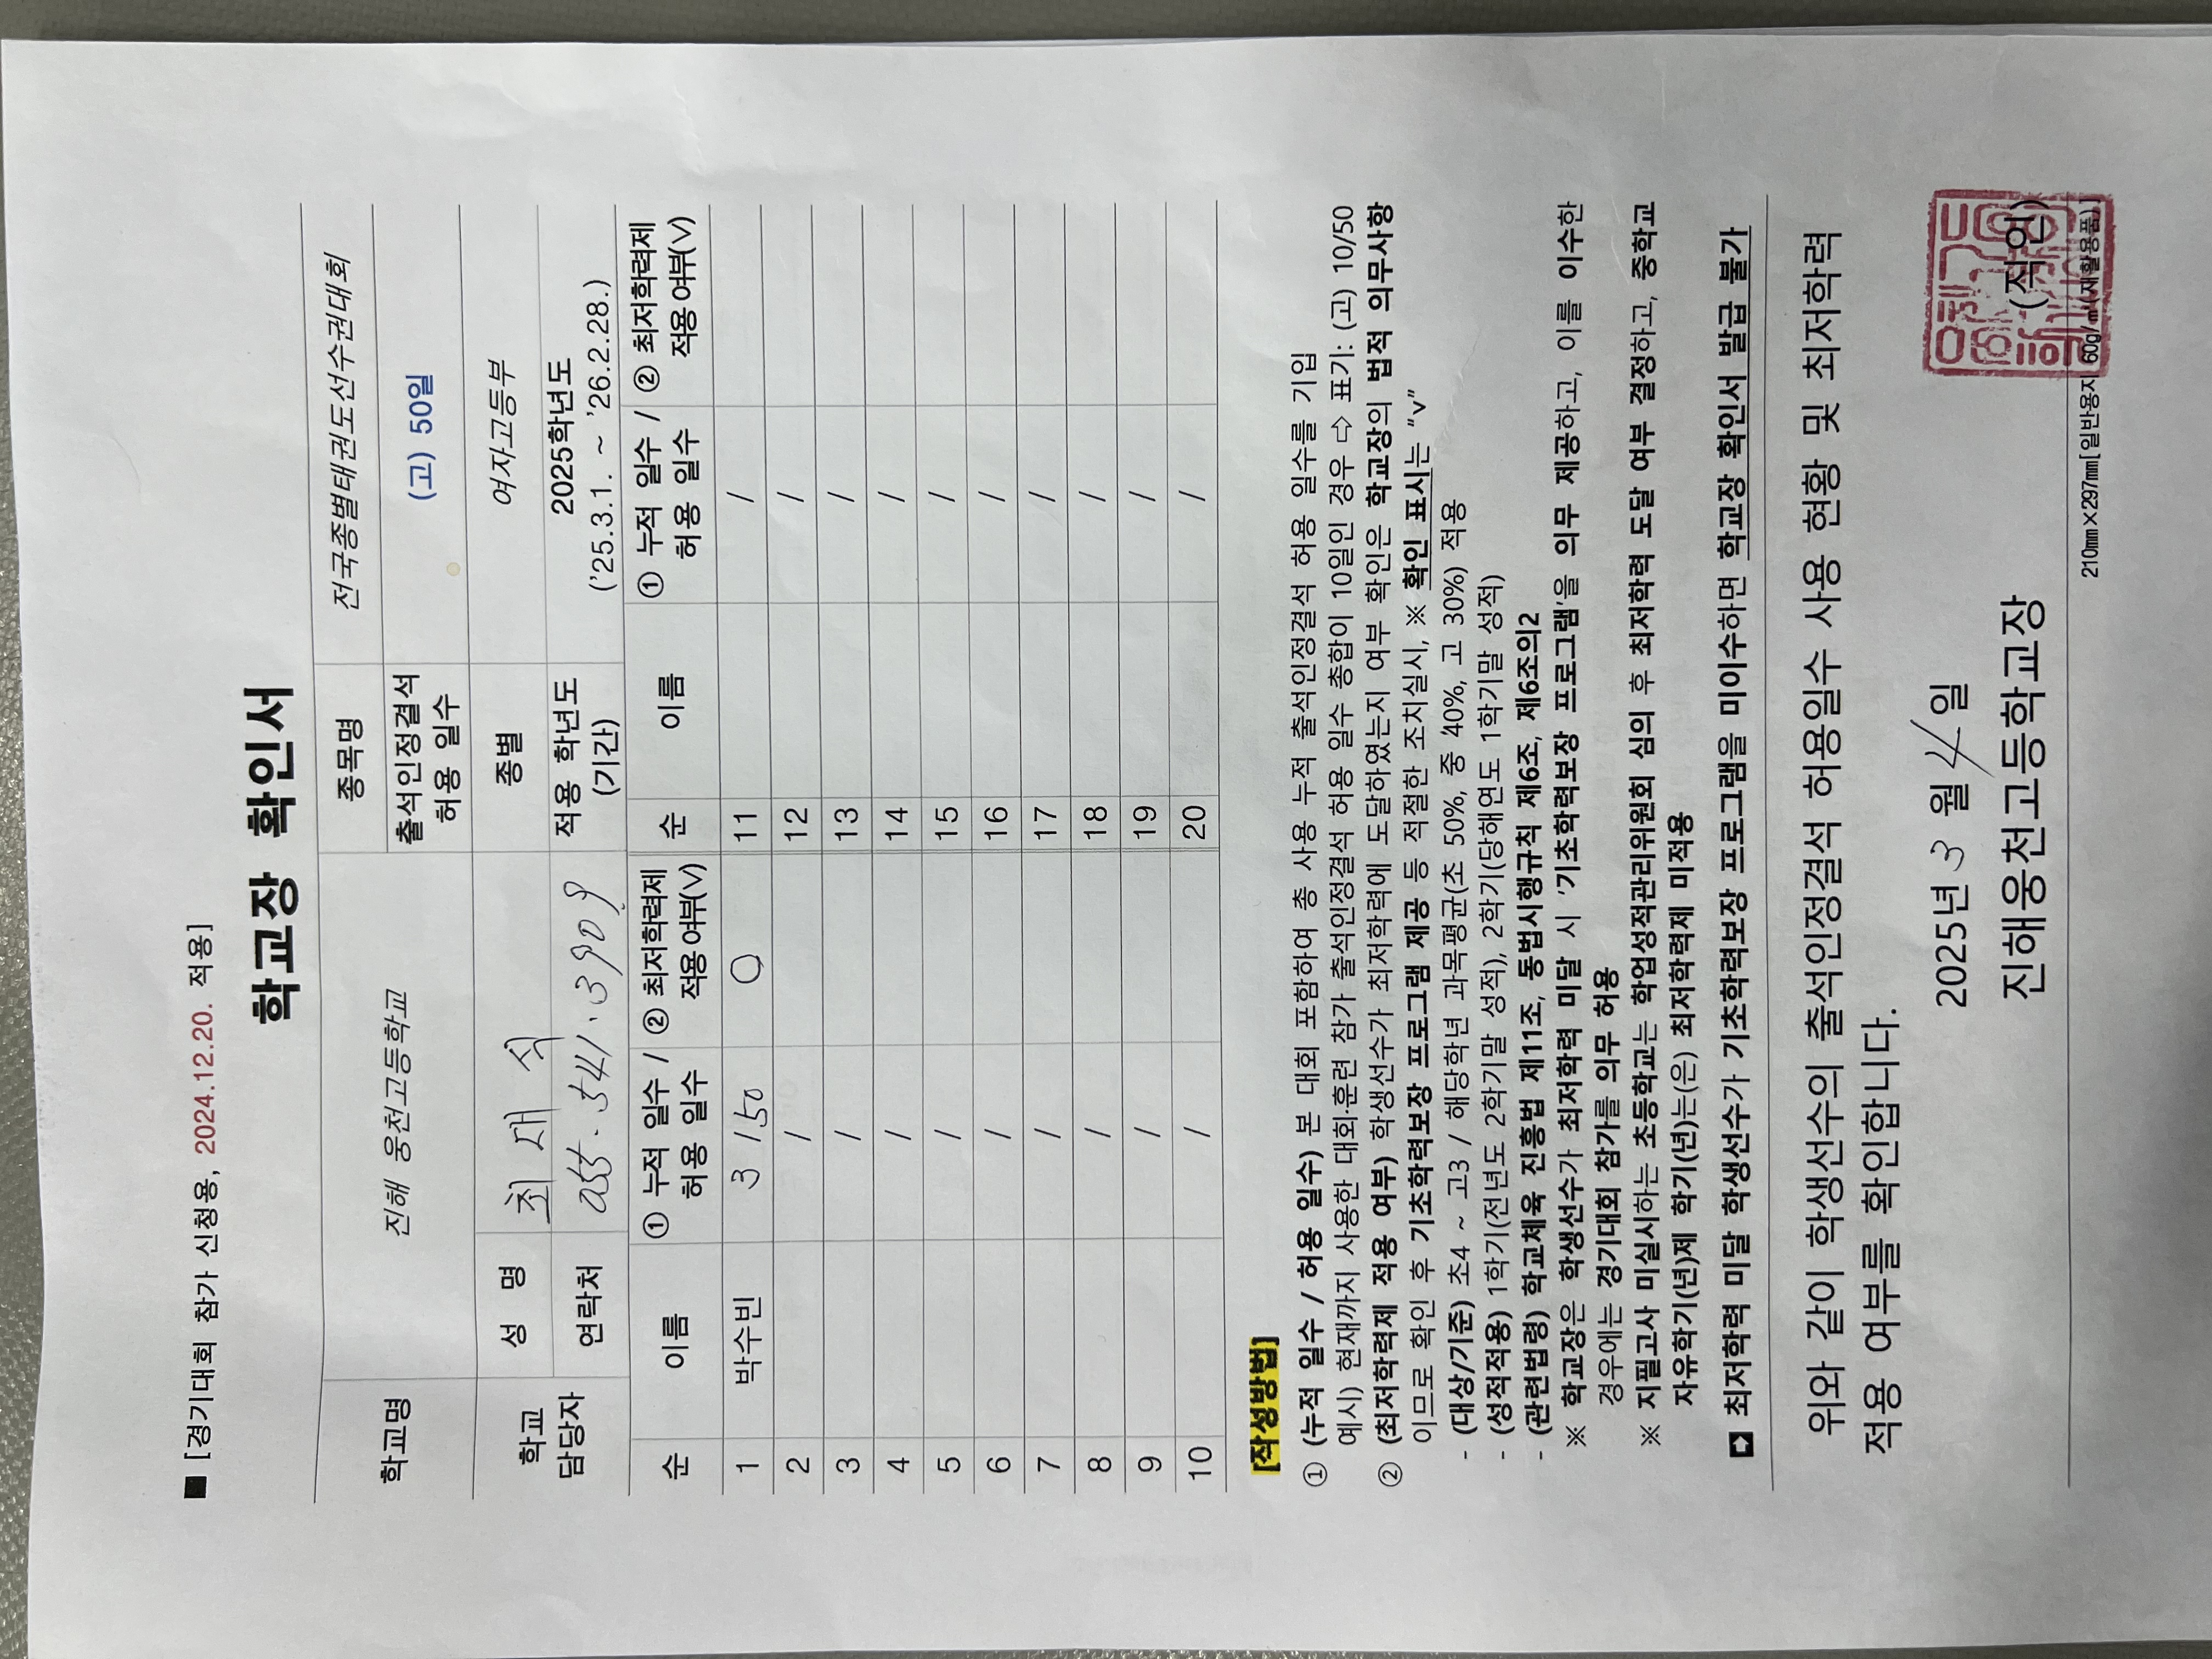 ■ [경기대회 참가 신청용, 2024.12.20. 적용]
학교장 확인서
학교명 진해 웅천고등학교 종목명 전국종별태권도선수권대회
출석인정결석 허용 일수 (고) 50일
학교 담당자 성 명 최 재 식 종별 여자고등부
연락처 055.541.3909 적용 학년도 (기간) 2025학년도 ('25.3.1. ~ '26.2.28.)
순 이름 ① 누적 일수 / 허용 일수 ② 최저학력제 적용 여부(V) 순 이름 ① 누적 일수 / 허용 일수 ② 최저학력제 적용 여부(V)
1 박수빈 3 / 50 O 11 /
2 / 12 /
3 / 13 /
4 / 14 /
5 / 15 /
6 / 16 /
7 / 17 /
8 / 18 /
9 / 19 /
10 / 20 /
[작성방법]
① (누적 일수 / 허용 일수) 본 대회 포함하여 총 사용 누적 출석인정결석 허용 일수를 기입
예시) 현재까지 사용한 대회·훈련 참가 출석인정결석 허용 일수 총합이 10일인 경우 ⇨ 표기: (고) 10/50
② (최저학력제 적용 여부) 학생선수가 최저학력에 도달하였는지 여부 확인은 학교장의 법적 의무사항
이므로 확인 후 기초학력보장 프로그램 제공 등 적절한 조치실시, ※ 확인 표시는 "v"
- (대상/기준) 초4 ~ 고3 / 해당학년 과목평균(초 50%, 중 40%, 고 30%) 적용
- (성적적용) 1학기(전년도 2학기말 성적), 2학기(당해연도 1학기말 성적)
- (관련법령) 학교체육 진흥법 제11조, 동법시행규칙 제6조, 제6조의2
※ 학교장은 학생선수가 최저학력 미달 시 '기초학력보장 프로그램'을 의무 제공하고, 이를 이수한
경우에는 경기대회 참가를 의무 허용
※ 지필고사 미실시하는 초등학교는 학업성적관리위원회 심의 후 최저학력 도달 여부 결정하고, 중학교
자유학기(년)제 학기(년)는(은) 최저학력제 미적용
➡ 최저학력 미달 학생선수가 기초학력보장 프로그램을 미이수하면 학교장 확인서 발급 불가
위와 같이 학생선수의 출석인정결석 허용일수 사용 현황 및 최저학력
적용 여부를 확인합니다.
2025년 3 월 4 일
진해웅천고등학교장 (직인)
210㎜×297㎜[일반용지 60g/㎡(재활용품)]